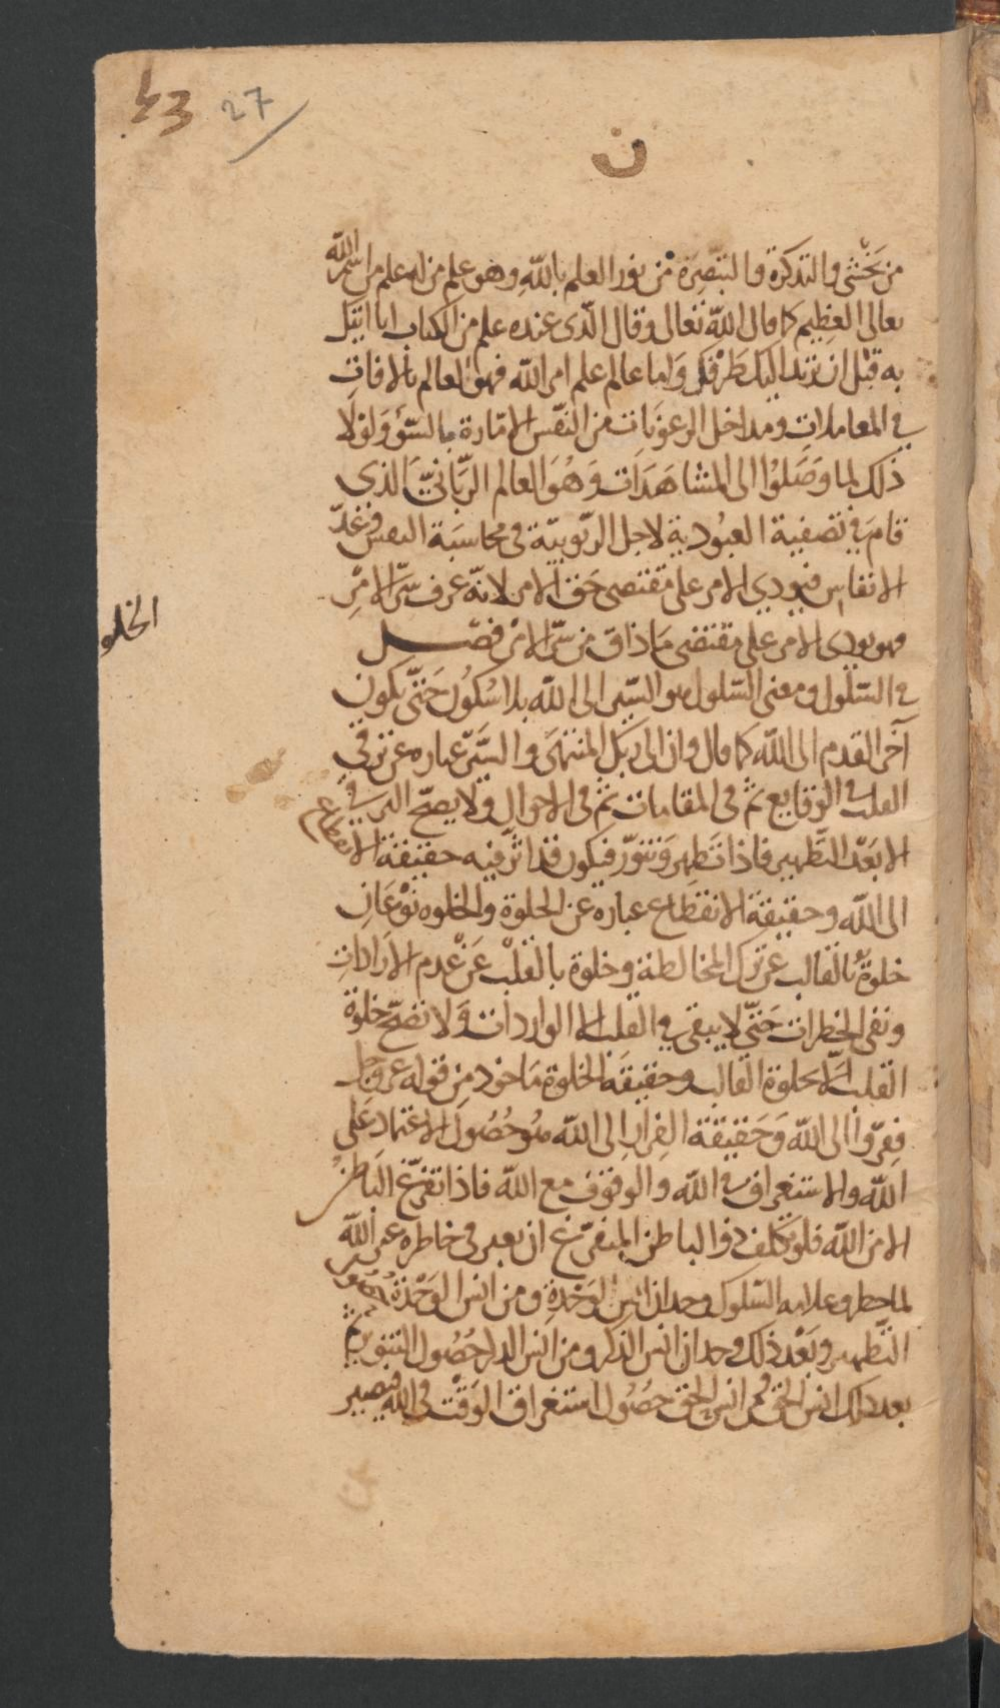 43 27
ن
من يخشى والتذكرة والتبصرة من نور العلم بالله وهو علم من له علم من اسم الله
تعالى العظيم كما قال الله تعالى وقال الذى عنده علم من الكتاب انا اتيك
به قبل ان يرتد اليك طرفك واما عالم علم امر الله فهو العالم بالافات
في المعاملات ومداخل الرعونات من النفس الامارة بالسؤ ولولا
ذلك لما وصلوا الى المشاهدات وهو العالم الربانيّ الذى
قام في تصفية العبودية لاجل الربوبيّة في محاسبة النفس وفي عدّ
الانفاس فيودي الامر على مقتضى حق الامر لانه عرف سرّ الامر
فهو يودى الامر على مقتضى ما ذاق من سرّ الامر فصل
الخلوه
في السلوك ومعنى السلوك هو السير الى الله بلا سكون حتى يكون
آخر القدم الى الله كما قال وان الى ربك المنتهى والسير عباره عن ترقي
القلب في الوقايع ثم في المقامات ثم في الاحوال ولا يصحّ السير
الا بعد التطهير فاذا تطهر وتنور فيكون قد اثر فيه حقيقة الانقطاع
الى الله وحقيقة الانقطاع عباره عن الخلوة والخلوه نوعان
خلوة بالقالب عن ترك المخالطة وخلوة بالقلب عن عدم الارادات
ونفى الخطرات حتى لا يبقى في القلب الا الواردات ولا تصحّ خلوة
القلب الا بخلوة القالب وحقيقة الخلوة ماخوذ من قوله عز وجل
ففرّوا الى الله وحقيقة الفرار الى الله هو حصول الاعتماد على
الله والاستغراق في الله والوقوف مع الله فاذا تفرّغ الباطن
الا من الله فلو كلف ذو الباطن المتفرّغ ان يعبر في خاطره غير الله
لما خطر وعلامه السلوك وجدان انس الوحدة ومن انس الوحدة ظهور
التطهير وبعد ذلك وجدان انس الذكر ومن انس الذكر حصول التنوير ثم
بعد ذلك انس الحق ومن انس الحق حصول استغراق الوقت في الله فيصير